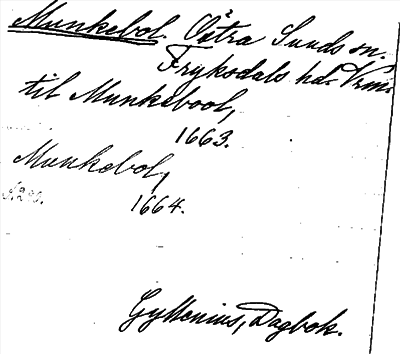 Munkebol. Östra Sunds sn.
Fryksdals hd. Vrml.
til Munkebool,
1663.
Munkebol,
1664.
Gyllenius, Dagbok.